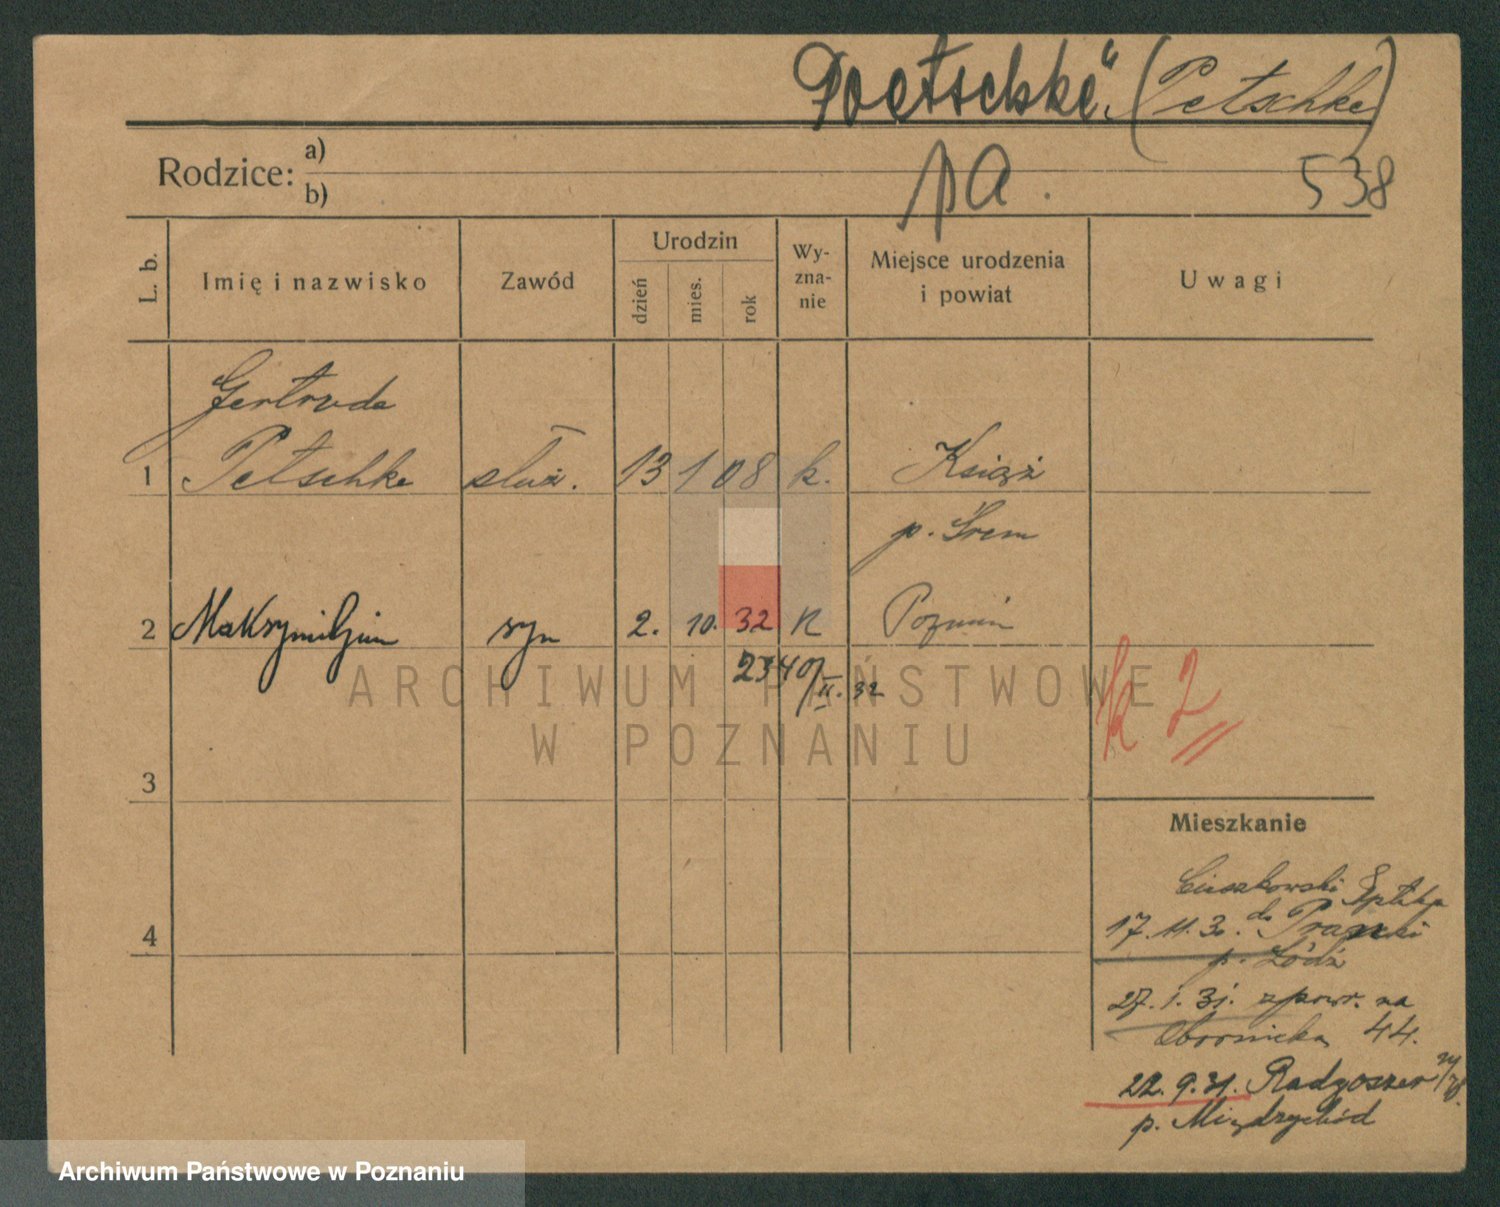 „Poetschke" (Petschke)
Rodzice: a)
b)
pa. 538
L. b.
Imię i nazwisko
Zawód
Urodzin
dzień
mies.
rok
Wy-
zna-
nie
Miejsce urodzenia
i powiat
Uwagi
Gertruda
1 Petschke służ. 13 1 08 k. Książ
p. Śrem
2 Maksymiljan syn 2. 10. 32 K Poznań
2340/II. 32
k 2
3
Mieszkanie
4
17. 11. 30. do
p. Łódź
27. 1. 31. zpowr. na
Obornicka 44.
22. 9. 31. Radgoszcz
p. Międzychód
ARCHIWUM PAŃSTWOWE
W POZNANIU
Archiwum Państwowe w Poznaniu